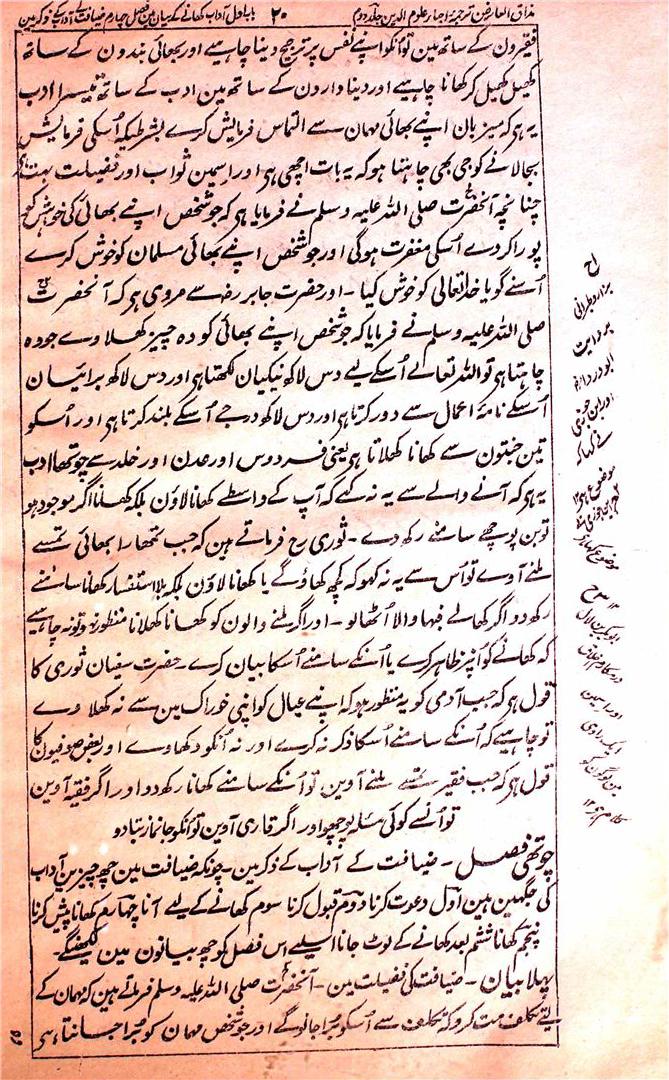 مذاق العارفین ترجمۂ احیاء علوم الدین جلد دوم ۲۰ باب اول آداب کھانے کے بیان مین فصل چہارم ضیافت کے آداب کے ذکر مین
فقیرون کے ساتھ مین تو انکو اپنے نفس پر ترجیح دینا چاہیے اور بھائی بندون کے ساتھ
کھیل کھیل کر کھانا چاہیے اور دیناوارون کے ساتھ مین ادب کے ساتھ تیسرا ادب
یہ ہی کہ میزبان اپنے بھائی مہمان سے التماس فرمایش کرے بشرطیکہ اُسکی فرمایش
بجالانے کو جی بھی چاہتا ہو کہ یہ بات اچھی ہی اور اسمین ثواب اور فضیلت بہت
چنانچہ آنحضرت صلی اللہ علیہ وسلم نے فرمایا ہی کہ جو شخص اپنے بھائی کی خواہش کو
پورا کردے اُسکی مغفرت ہوگی اور جو شخص اپنے بھائی مسلمان کو خوش کرے
اُسنے گویا خدا تعالی کو خوش کیا - اور حضرت جابر رضہ سے مروی ہی کہ آنحضرت
صلی اللہ علیہ وسلم نے فرمایا کہ جو شخص اپنے بھائی کو وہ چیز کھلاوے جو وہ
چاہتا ہی تو اللہ تعالے اُسکے لیے دس لاکھ نیکیان لکھتا ہی اور دس لاکھ برائیان
اُسکے نامۂ اعمال سے دور کرتا ہی اور دس لاکھ درجے اُسکے بلند کرتا ہی اور اُسکو
تین جنتون سے کھانا کھلاتا ہی یعنی فردوس اور عدن اور خلد سے چوتھا ادب
یہ ہی کہ آنے والے سے یہ نہ کہے کہ آپ کے واسطے کھانا لاؤن بلکہ کھانا اگر موجود ہو
تو بن پوچھے سامنے رکھ دے - ثوری رح فرماتے ہین کہ جب تمھارا بھائی تمسے
ملنے آوے تو اُس سے یہ نہ کہو کہ کچھ کھاؤگے یا کھانا لاؤن بلکہ بلا استفسار کھانا سامنے
رکھ دو اگر کھالے فبہا والا اُٹھا لو - اور اگر ملنے والون کو کھانا کھلانا منظور نہ ہو تو نہ چاہیے
کہ کھانے کو اُنپر ظاہر کرے یا اُنکے سامنے اُسکا بیان کرے - حضرت سفیان ثوری کا
قول ہی کہ جب آدمی کو یہ منظور ہو کہ اپنے عیال کو اپنی خوراک مین سے نہ کھلاوے
تو چاہیے کہ اُنکے سامنے اُسکا ذکر نہ کرے اور نہ اُنکو دکھاوے اور بعض صوفیون کا
قول ہی کہ جب فقیر تمسے ملنے آوین تو اُنکے سامنے کھانا رکھ دو اور اگر فقیہ آوین
تو اُنسے کوئی مسئلہ پوچھو اور اگر قاری آوین تو انکو جانماز بتادو
چوتھی فصل - ضیافت کے آداب کے ذکر مین - چونکہ ضیافت مین چھ چیزین آداب
کی جگہین ہین اول دعوت کرنا دوم قبول کرنا سوم کھانے کے لیے آنا چہارم کھانا پیش کرنا
پنجم کھانا ششم بعد کھانے کے لوٹ جانا اسلیے اس فصل کو چھ بیانون مین لکھینگے -
پہلا بیان - ضیافت کی فضیلت مین - آنحضرت صلی اللہ علیہ وسلم فرماتے ہین کہ مہمان کے
لیے تکلف مت کرو کہ تکلف سے اُسکو بُرا جانوگے اور جو شخص مہمان کو بُرا جانتا ہی
بروایت
ابودرداء
اور ابن جوزی
نے کہا کہ
موضوع
اور اسمین
ایک راوی